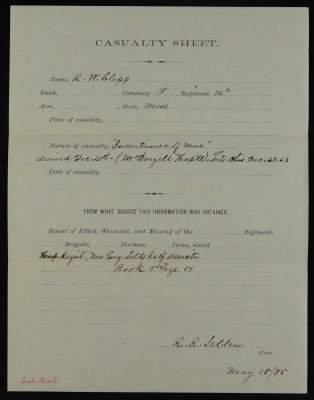 CASUALTY SHEET.
Name, R. W. Clapp
Rank, Company F, Regiment, 36th
Arm, State, Mass
Place of casualty,
Nature of casualty, "Incontinence of Urine"
arrived Dec. 28th - (McDougall Hosptl). into this Dec. 28.63
Date of casualty.
FROM WHAT SOURCE THIS INFORMATION WAS OBTAINED.
Report of Killed, Wounded, and Missing of the Regiment,
Brigade, Division, Corps, dated
Hosp. Regist., New Eng. Soldr Relf. Associatn
Book 5 Page 51
R. R. Selden
Clerk.
May 15/85